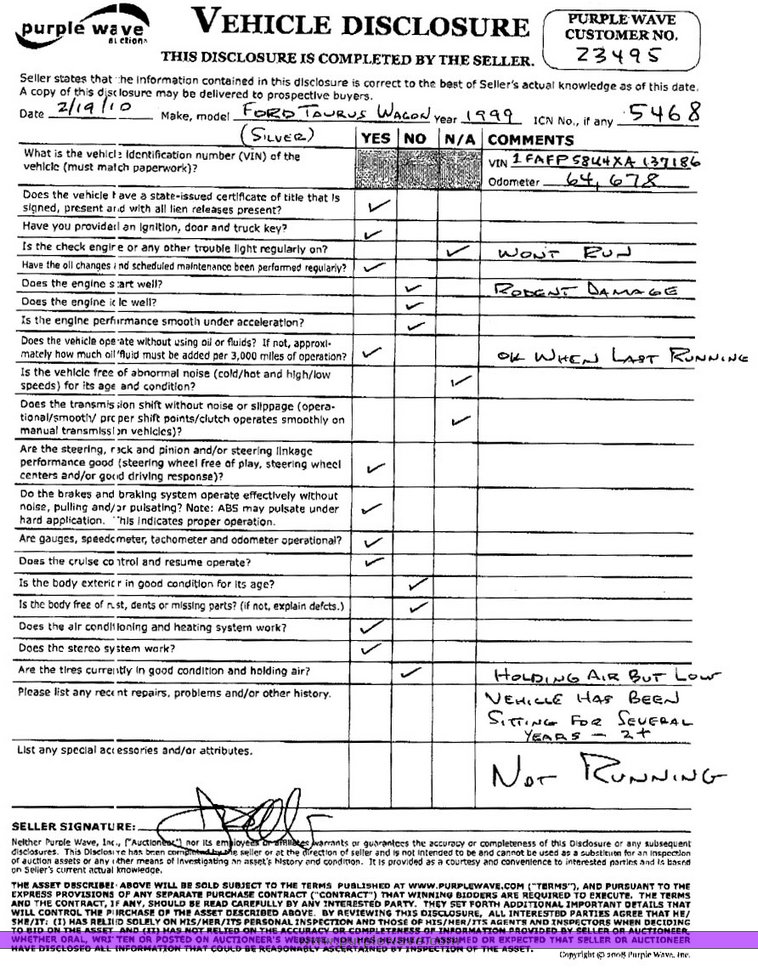 purple wave
auction
VEHICLE DISCLOSURE
THIS DISCLOSURE IS COMPLETED BY THE SELLER.
PURPLE WAVE
CUSTOMER NO.
23495
Seller states that the information contained in this disclosure is correct to the best of Seller's actual knowledge as of this date.
A copy of this disclosure may be delivered to prospective buyers.
Date 2/19/10 Make, model FORD TAURUS WAGON Year 1999 ICN No., if any 5468
(SILVER)
YES NO N/A COMMENTS
What is the vehicle identification number (VIN) of the
vehicle (must match paperwork)?
VIN 1FAFP58U4XA137186
Odometer 64,678
Does the vehicle have a state-issued certificate of title that is
signed, present and with all lien releases present? ✓
Have you provided an ignition, door and truck key? ✓
Is the check engine or any other trouble light regularly on? ✓ WON'T RUN
Have the oil changes and scheduled maintenance been performed regularly? ✓
Does the engine start well? ✓ RODENT DAMAGE
Does the engine idle well? ✓
Is the engine performance smooth under acceleration? ✓
Does the vehicle operate without using oil or fluids? If not, approxi-
mately how much oil/fluid must be added per 3,000 miles of operation? ✓ OK WHEN LAST RUNNING
Is the vehicle free of abnormal noise (cold/hot and high/low
speeds) for its age and condition? ✓
Does the transmission shift without noise or slippage (opera-
tional/smooth/ proper shift points/clutch operates smoothly on
manual transmission vehicles)? ✓
Are the steering, rack and pinion and/or steering linkage
performance good (steering wheel free of play, steering wheel
centers and/or good driving response)? ✓
Do the brakes and braking system operate effectively without
noise, pulling and/or pulsating? Note: ABS may pulsate under
hard application. This indicates proper operation. ✓
Are gauges, speedometer, tachometer and odometer operational? ✓
Does the cruise control and resume operate? ✓
Is the body exterior in good condition for its age? ✓
Is the body free of rust, dents or missing parts? (if not, explain defcts.) ✓
Does the air conditioning and heating system work? ✓
Does the stereo system work? ✓
Are the tires currently in good condition and holding air? ✓ HOLDING AIR BUT LOW
Please list any recent repairs, problems and/or other history. VEHICLE HAS BEEN
SITTING FOR SEVERAL
YEARS - 2+
List any special accessories and/or attributes.
NOT RUNNING
SELLER SIGNATURE:
Neither Purple Wave, Inc., ("Auctioneer") nor its employees or affiliates warrants or guarantees the accuracy or completeness of this Disclosure or any subsequent
disclosures. This Disclosure has been completed by the seller or at the direction of seller and is not intended to be and cannot be used as a substitute for an inspection
of auction assets or any other means of investigating an asset's history and condition. It is provided as a courtesy and convenience to interested parties and is based
on Seller's current actual knowledge.
THE ASSET DESCRIBED ABOVE WILL BE SOLD SUBJECT TO THE TERMS PUBLISHED AT WWW.PURPLEWAVE.COM ("TERMS"), AND PURSUANT TO THE
EXPRESS PROVISIONS OF ANY SEPARATE PURCHASE CONTRACT ("CONTRACT") THAT WINNING BIDDERS ARE REQUIRED TO EXECUTE. THE TERMS
AND THE CONTRACT, IF ANY, SHOULD BE READ CAREFULLY BY ANY INTERESTED PARTY. THEY SET FORTH ADDITIONAL IMPORTANT DETAILS THAT
WILL CONTROL THE PURCHASE OF THE ASSET DESCRIBED ABOVE. BY REVIEWING THIS DISCLOSURE, ALL INTERESTED PARTIES AGREE THAT HE/
SHE/IT: (I) HAS RELIED SOLELY ON HIS/HER/ITS PERSONAL INSPECTION AND THOSE OF HIS/HER/ITS AGENTS AND INSPECTORS WHEN DECIDING
TO BID ON THE ASSET AND (II) HAS NOT RELIED ON THE ACCURACY OR COMPLETENESS OF INFORMATION PROVIDED BY SELLER OR AUCTIONEER,
WHETHER ORAL, WRITTEN OR POSTED ON AUCTIONEER'S OR EXPECTED THAT SELLER OR AUCTIONEER
HAVE DISCLOSED ALL INFORMATION THAT COULD BE REASONABLY ASCERTAINED BY INSPECTION OF THE ASSET.
Copyright © 2008 Purple Wave, Inc.